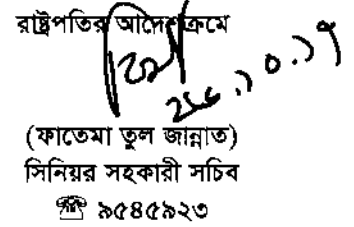 রাষ্ট্রপতির আদেশক্রমে
(ফাতেমা তুল জান্নাত)
সিনিয়র সহকারী সচিব
☎ ৯৫৪৫৯২৩